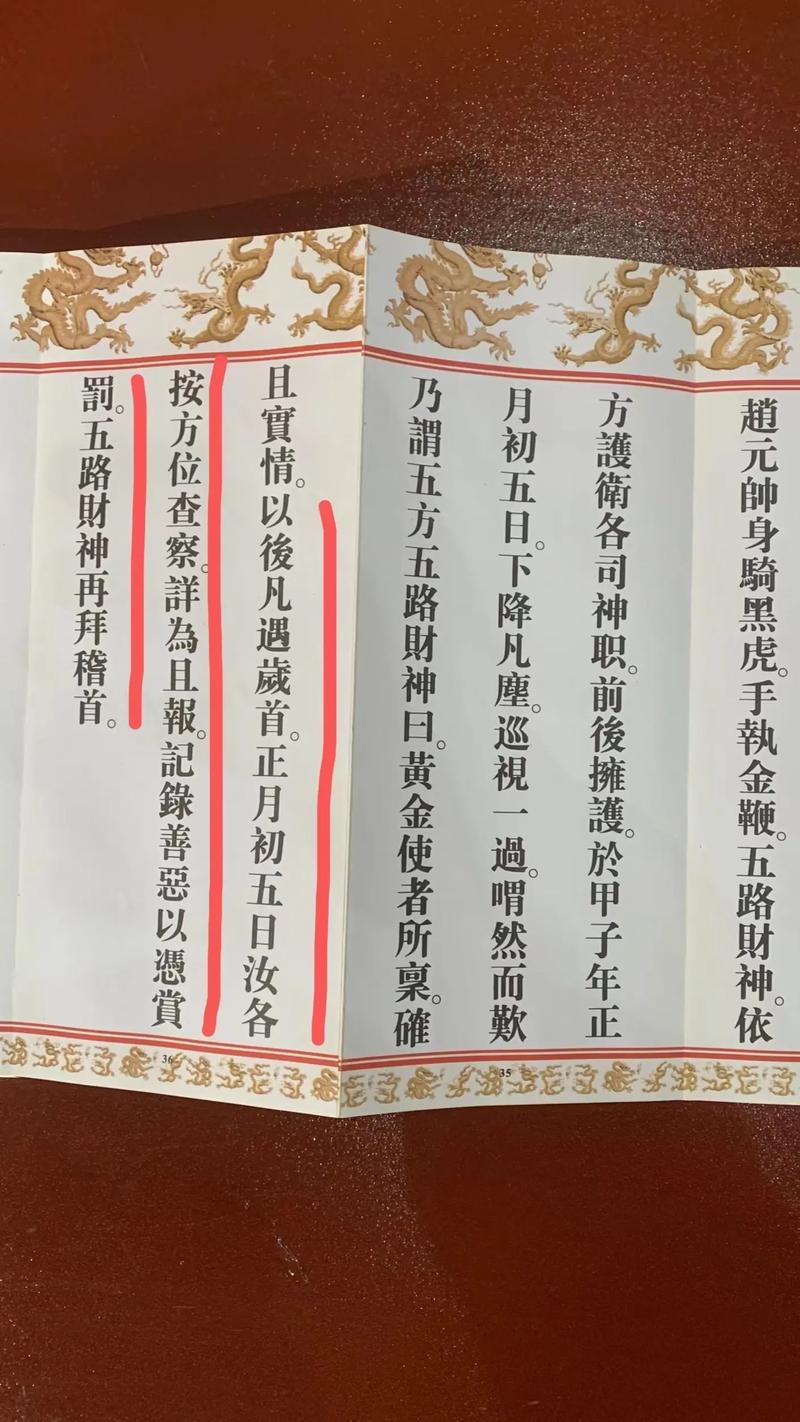 趙元帥身騎黑虎。手執金鞭。五路財神。依
方護衛各司神职。前後擁護。於甲子年正
月初五日。下降凡塵。巡視一過。喟然而歎
乃謂五方五路財神曰。黃金使者所稟。確
35
且實情。以後凡遇歲首。正月初五日汝各
按方位查察。詳為且報。記錄善惡以憑賞
罰。五路財神再拜稽首。
36